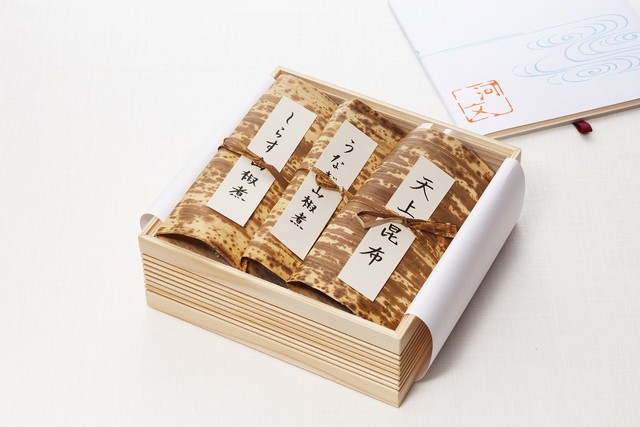 しらす山椒煮
うなぎ山椒煮
天上昆布